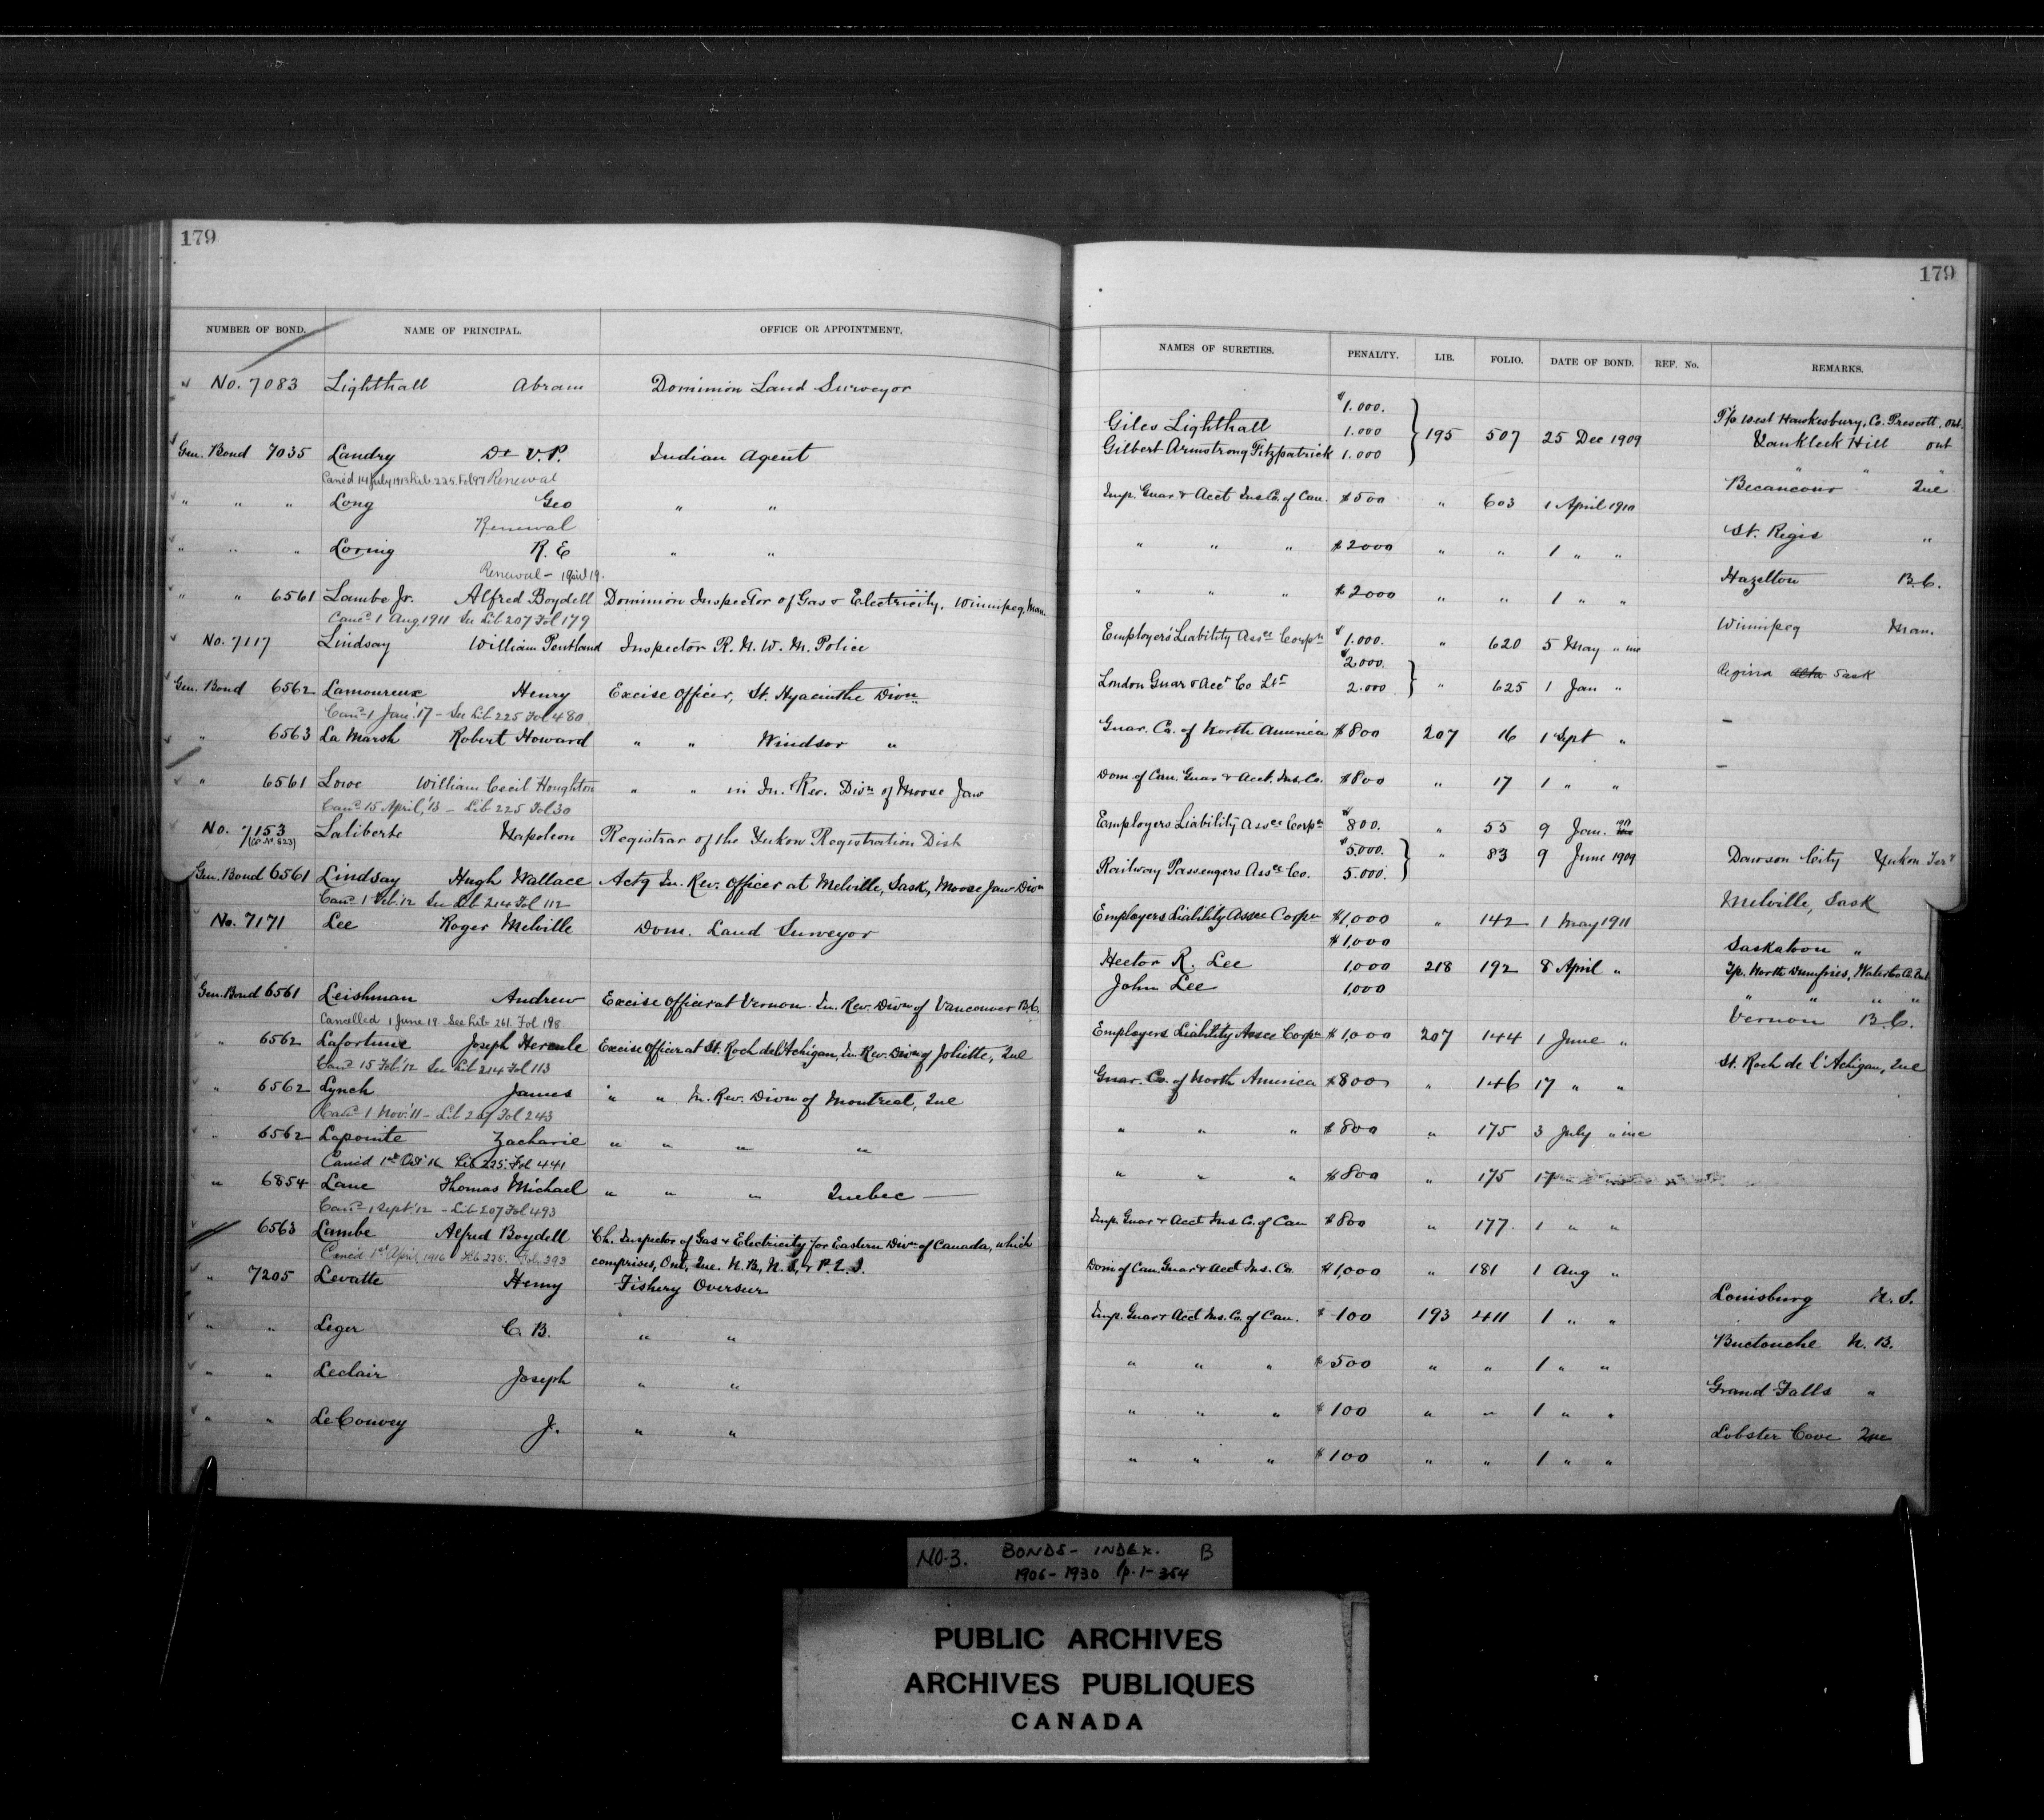 179
NUMBER OF BOND. NAME OF PRINCIPAL. OFFICE OR APPOINTMENT.
No. 7083 Lighthall Abram Dominion Land Surveyor
Gen. Bond 7035 Landry Dr V.P. Indian Agent
Canc'd 14 July 1913 Lib 225. Fol 97 Renewal
" " " Long Geo " "
Renewal
" " " Loring R. E " "
Renewal - 1 April 19.
" " 6561 Lambe Jr. Alfred Boydell Dominion Inspector of Gas & Electricity, Winnipeg, Man.
Canc. 1 Aug. 1911 See Lib 207 Fol 179
No. 7117 Lindsay William Pentland Inspector R. N. W. M. Police
Gen. Bond 6562 Lamoureux Henry Excise Officer, St. Hyacinthe Divn
Canc. 1 Jan'y. '17 - See Lib 225 Fol 480
" 6563 La Marsh Robert Howard " " Windsor "
" 6561 Lowe William Cecil Houghton " " in In. Rev. Divn of Moose Jaw
Canc. 15 April, '13 - Lib 225 Fol 30
No. 7153 Laliberte Napoleon Registrar of the Yukon Registration Dist
(Co. No. 823)
Gen. Bond 6561 Lindsay Hugh Wallace Actg In. Rev. Officer at Melville, Sask, Moose Jaw Divn
Canc. 1 Feb. '12 See Lib 214 Fol 112
No. 7171 Lee Roger Melville Dom. Land Surveyor
Gen. Bond 6561 Leishman Andrew Excise Officer at Vernon In. Rev. Divn of Vancouver B.C.
Cancelled 1 June 19 See Lib 261. Fol 198
" 6562 Lafortune Joseph Hercule Excise Officer at St. Roch de l'Achigan, In. Rev. Divn of Joliette, Que
Canc. 15 Feb. '12 See Lib 214 Fol 113
" 6562 Lynch James " " In. Rev. Divn of Montreal, Que
Canc. 1 Nov. '11 - Lib 207 Fol 243
" 6562 Lapointe Zacharie " " " "
Canc'd 1st Oct '16 Lib 225. Fol 441
" 6854 Lane Thomas Michael " " " Quebec —
Canc. 1 Sept. '12 - Lib 207 Fol 493
6563 Lambe Alfred Boydell Ch. Inspector of Gas & Electricity for Eastern Divn of Canada, which
Canc'd 1st April, 1916 Lib 225. Fol. 393 comprises, Ont, Que. N. B., N. S. & P. E. I.
" 7205 Levatte Henry Fishery Overseer
" " Leger C. B. " "
" " Leclair Joseph " "
" " LeCouvey J. " "
179
NAMES OF SURETIES. PENALTY. LIB. FOLIO. DATE OF BOND. REF. No. REMARKS.
$1.000. T'p West Hawkesbury, Co. Prescott, Ont.
Giles Lighthall 1.000 195 507 25 Dec 1909 Vankleek Hill Ont
Gilbert Armstrong Fitzpatrick 1.000 " " "
Imp. Guar. & Acct Ins Co. of Can. $500 " 603 1 April 1910 Becancour Que
" " " $2000 " " 1 " " St. Regis "
" " " $2000 " " 1 " " Hazelton B.C.
Employers' Liability Assce Corpn $1.000. " 620 5 May " inc Winnipeg Man.
$2.000.
London Guar & Acct Co Ltd 2.000 " 625 1 Jan " Regina Alta Sask
Guar. Co. of North America $800 207 16 1 Sept " –
Dom. of Can. Guar & Acct. Ins. Co. $800 " 17 1 " " –
Employers Liability Assce Corpn $800. " 55 9 Jan. 1911
$5.000. " 83 9 June 1909 Dawson City Yukon Terr
Railway Passengers Assce Co. 5.000.
Employers Liability Assce Corpn $1,000 " 142 1 May 1911 Melville, Sask
$1,000 Saskatoon "
Hector R. Lee 1,000 218 192 8 April " Tp. North Dumfries, Waterloo Co. Ont
John Lee 1,000 " " " "
Employers Liability Assce Corpn $1,000 207 144 1 June " Vernon B.C.
Guar. Co. of North America $800 " 146 17 " " St. Roch de l'Achigan, Que
" " " $800 " 175 3 July " inc
" " " $800 " 175 17
Imp. Guar & Acct Ins Co. of Can $800 " 177. 1 " "
Dom. of Can. Guar & Acct Ins. Co. $1,000 " 181 1 Aug "
Imp. Guar & Acct Ins. Co. of Can. $100 193 411 1 " " Louisburg N. S.
" " " $500 " " 1 " " Buctouche N. B.
" " " $100 " " 1 " " Grand Falls "
" " " $100 " " 1 " " Lobster Cove Que
NO. 3. BONDS - INDEX. B
1906 - 1930 p. 1-354
PUBLIC ARCHIVES
ARCHIVES PUBLIQUES
CANADA